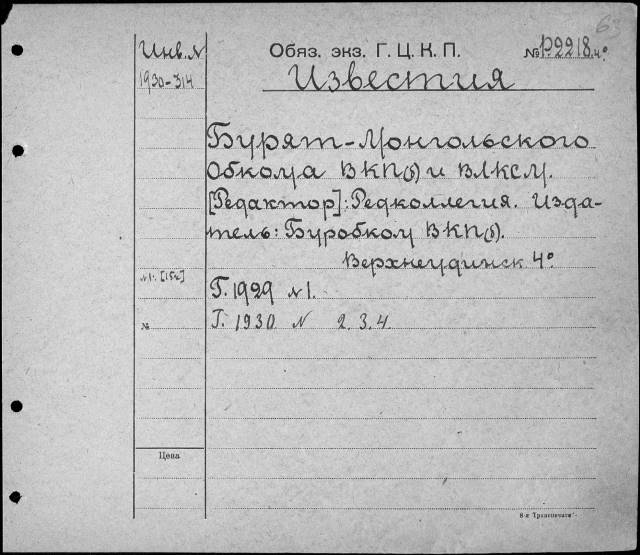 63
Инв. №
Обяз. экз. Г. Ц. К. П.
№ Р2218. 4°
1930-314
Известия
Бурят-Монгольского
Обкома ВКП(б) и ВЛКСМ.
[Редактор]: Редколлегия. Изда-
тель: Буробком ВКП(б).
Верхнеудинск 4°
№1. [15к]
Г. 1929 №1.
№
Г. 1930 № 2. 3. 4
Цена
8-я Транспечати